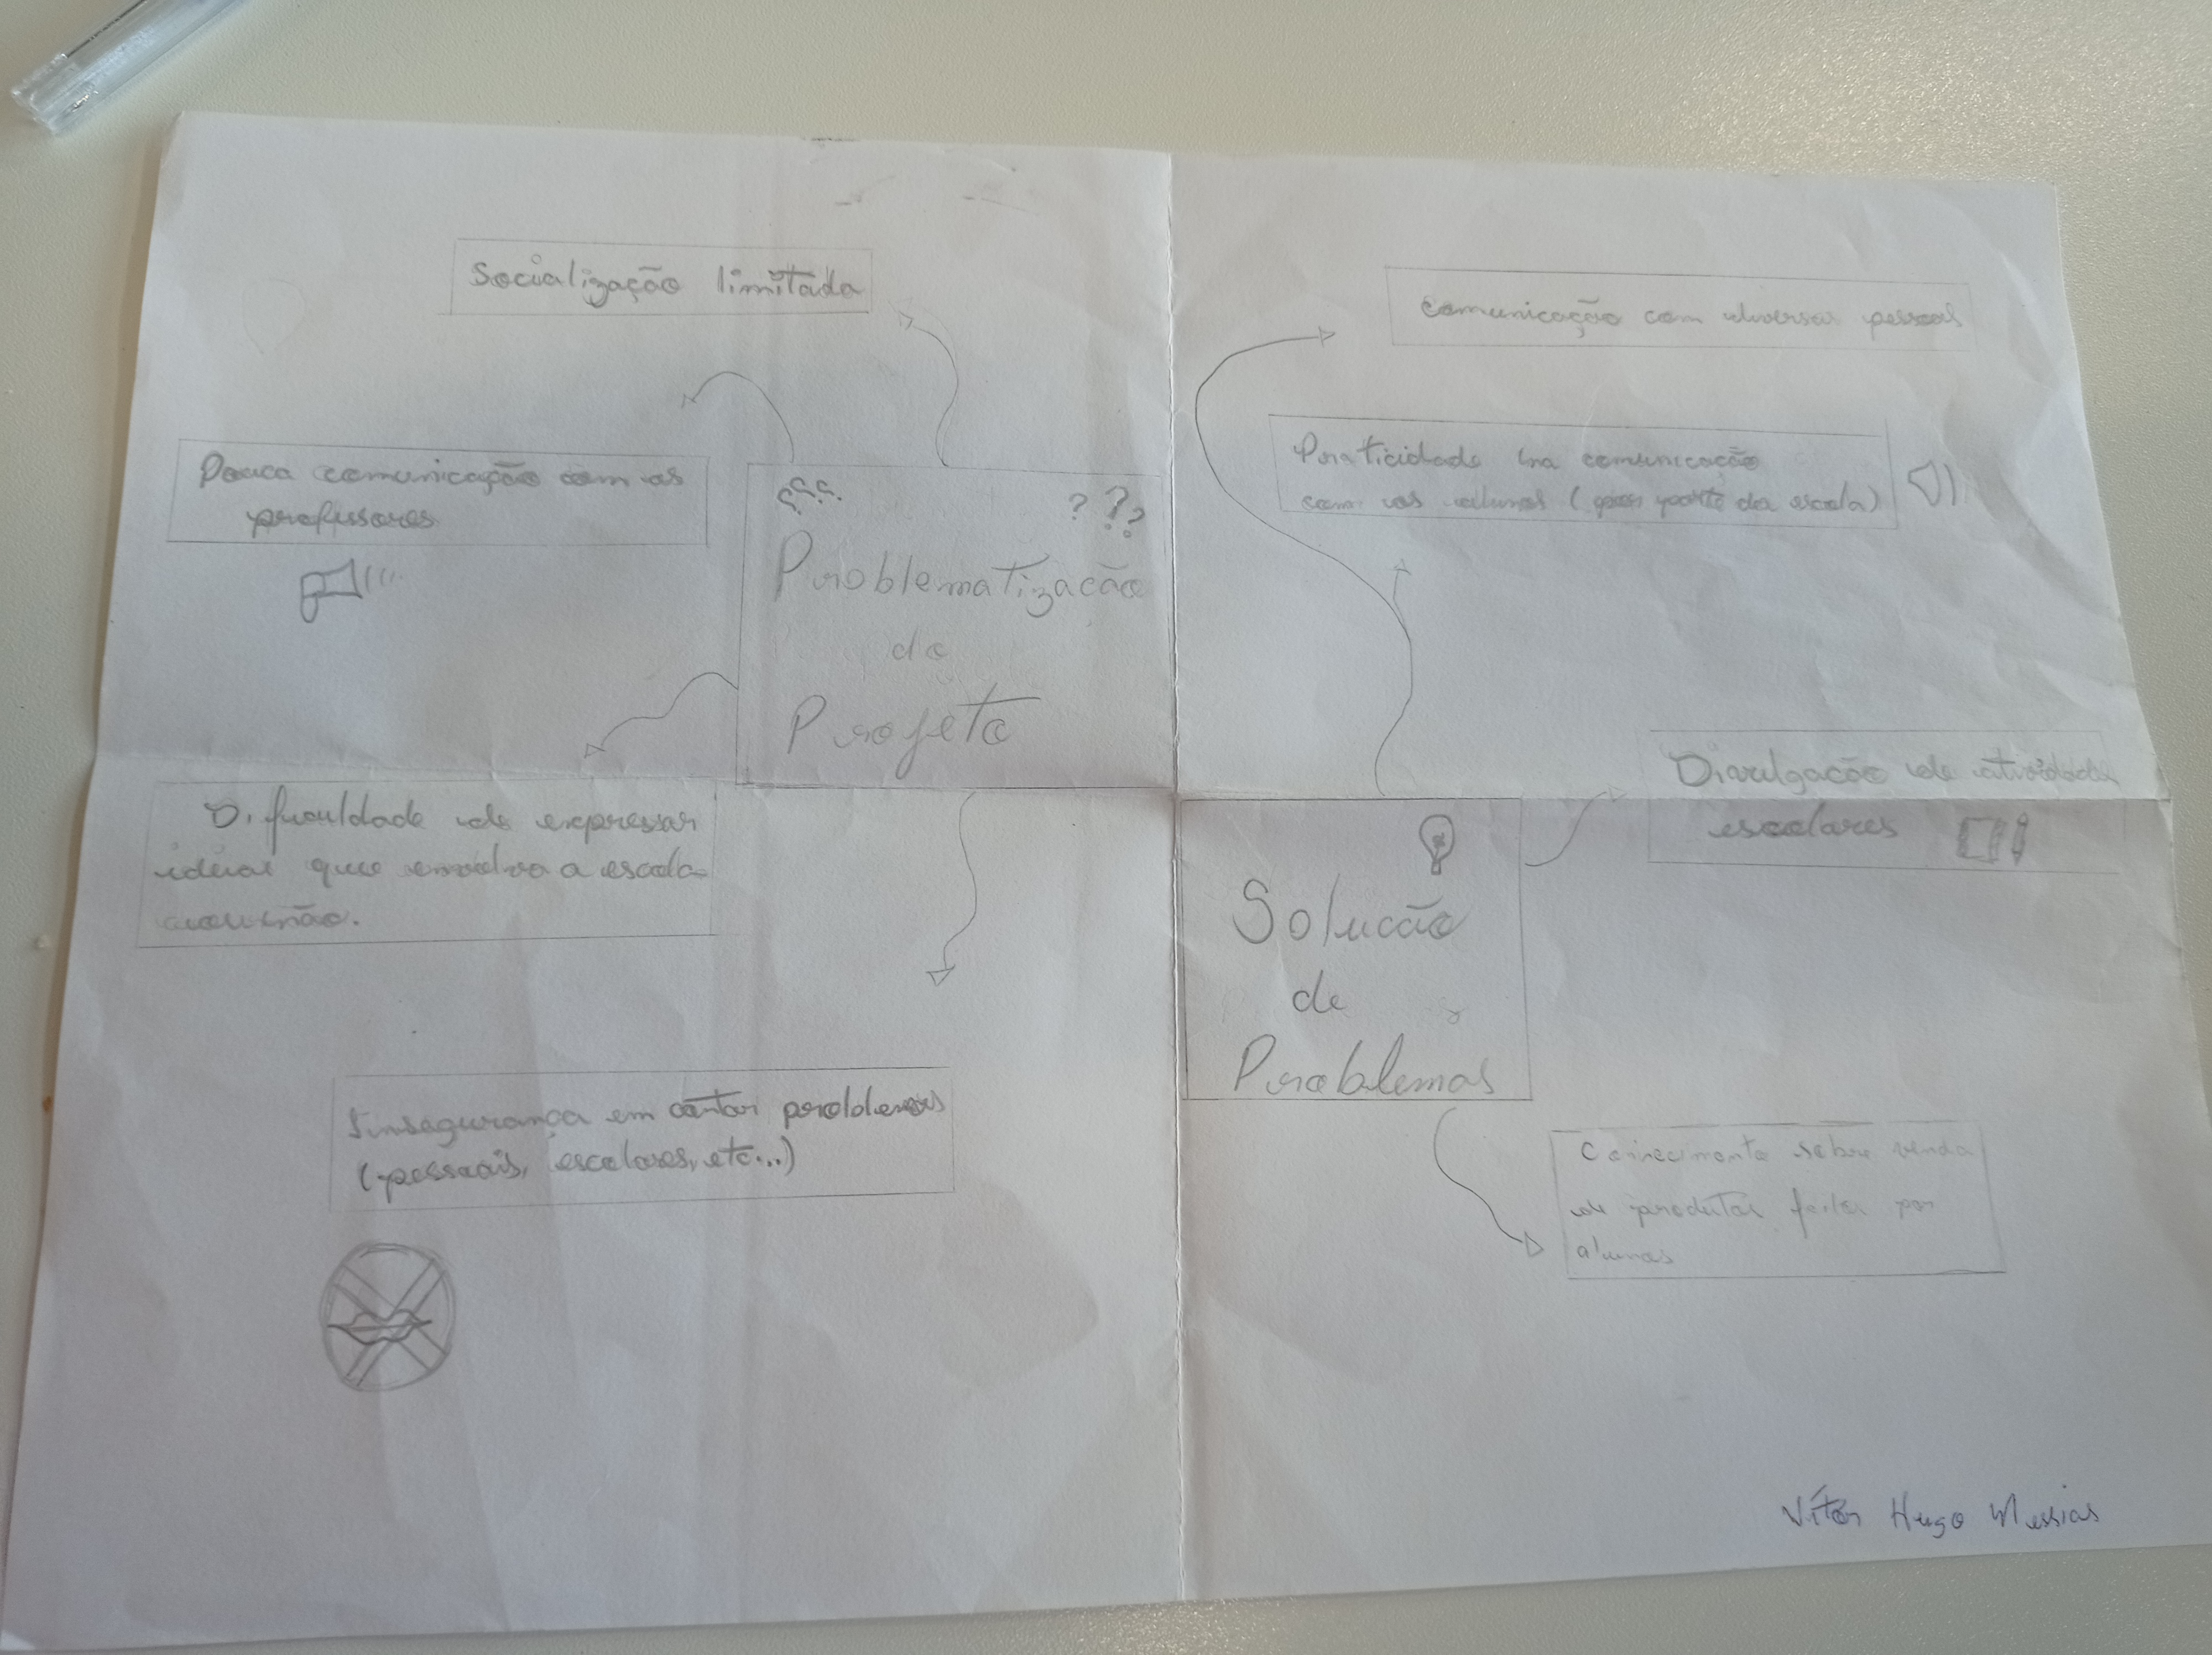 Socialização limitada
Pouca comunicação com os
professores
??? ???
Problematização
do
Projeto
Dificuldade de expressar
idéias que envolva a escola
ou não.
Insegurança em contar problemas
(pessoais, escolares, etc...)
Comunicação com diversas pessoas
Praticidade na comunicação
com os alunos (por parte da escola)
Divulgação de atividades
escolares
Solucão
de
Problemas
Conhecimento sobre venda
de produtos feitos por
alunos
Vítor Hugo Messias